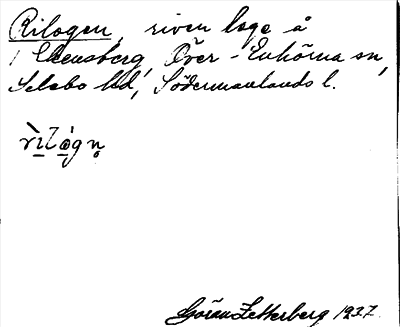 Rilogen, riven loge å
/ Ekensberg, Över-Enhörna sn,
Selebo hd, Södermanlands l.
rìlógn̥
Göran Zetterberg 1937.